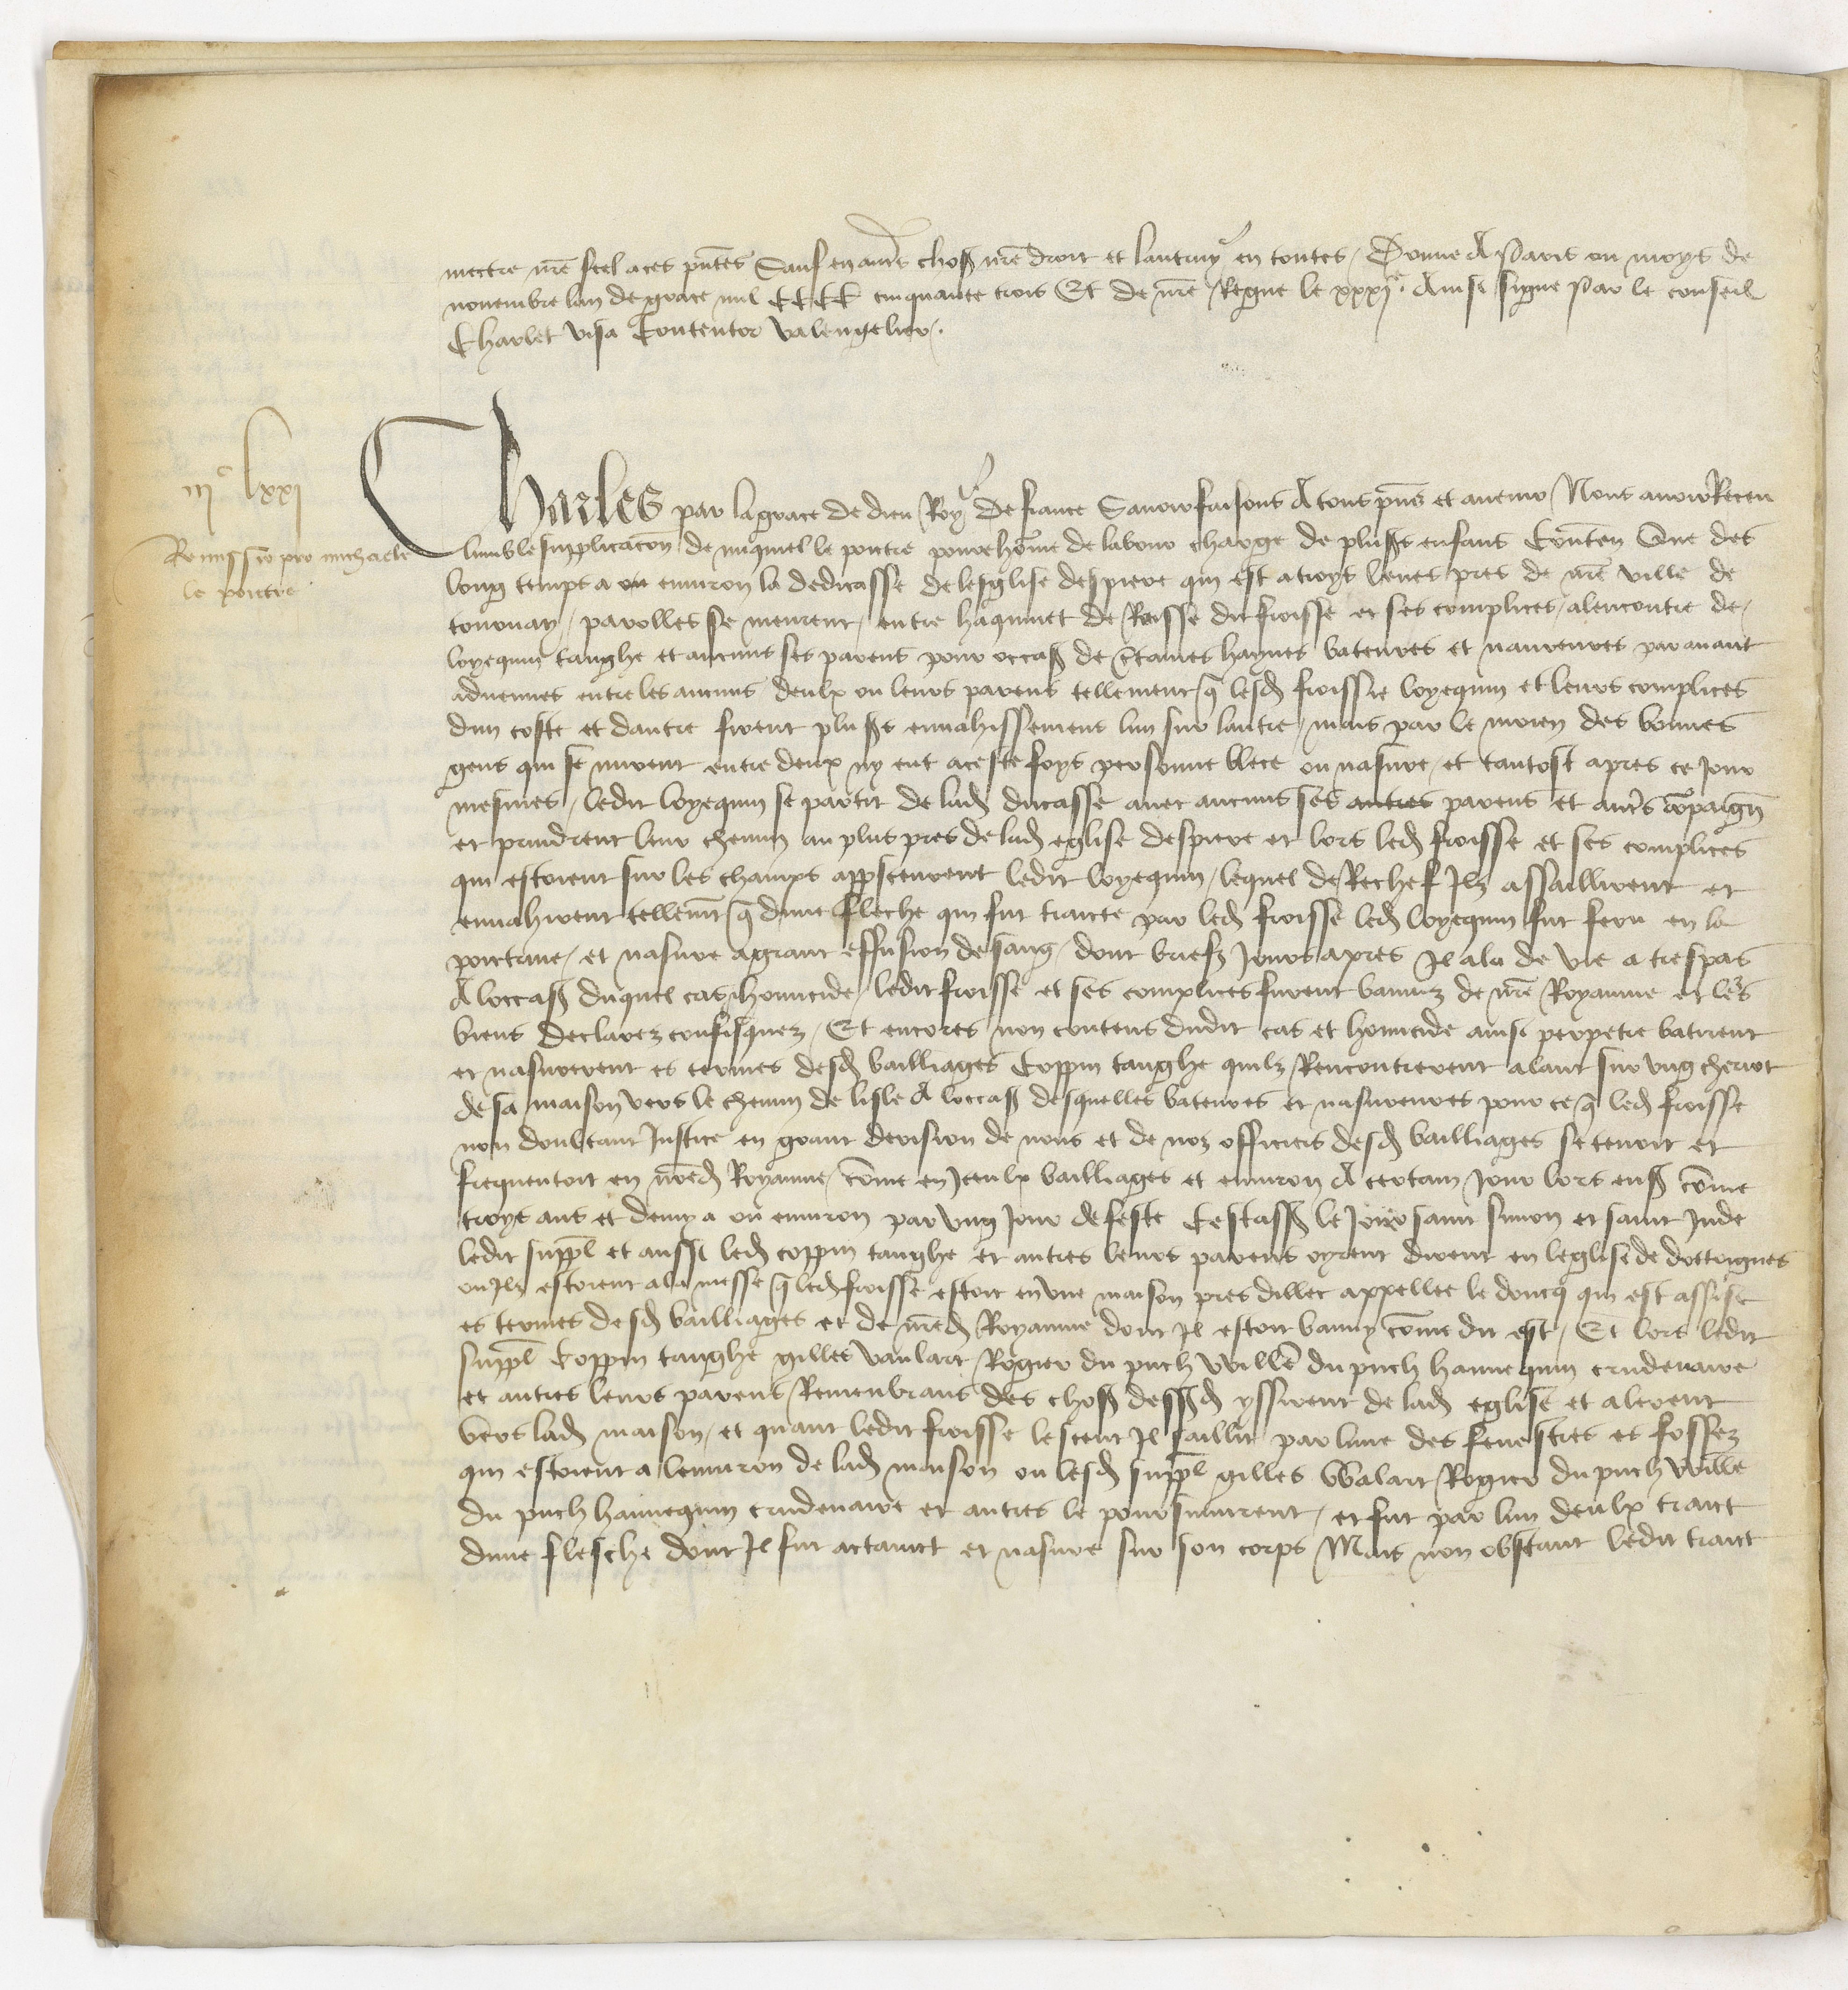 mectre nr̃e seel a ces pñtes Sauf en aut's chos nr̃e droit et lautruy en toutes / Donne A Paris ou moys de
novembre lan de grace mil CCCC cinquante trois Et de nr̃e Regne le xxxije Ainsi signe Par le conseil
Charlet visa Contentor Valengelier /.
iijc lxxj
Remissio pro michaele
le pontre
Charles par la grace de dieu Roy de france Savoir faisons A tous pñs et avenir / Nous avoir Receu
lumble supplicacõn de miquiel le pontre povre hõme de labour charge de plus's enfans Conteñ Que des
long temps a ou environ la dedicasse de lesglise despiere qui est a troys lieues pres de nr̃e ville de
tournay / parolles se meurent / entre haquinet de Roisse dit froisse et ses complices / alencontre de /
loyequin tanghe et aucuns ses parens pour occas̃ de c̃taines haynes bateures et navreures par avant
advenues entre les aucuns deulx ou leurs parens tellement q̃ lesd froissie loyequin et leurs complices
dun coste et dautre firent plus's envahissemens lun sur lautre / mais par le moien des bonnes
gens qui se mirent entre deux ny eut a ceste foys personne blece ou nasvre / et tantost apres ce jour
mesmes / ledit loyequin se partit de lad ducasse avec aucuns ses autres parens et aut's cõpaigñ
et prindrent leur chemin au plus pres de lad eglise despiere et lors led froisse et ses complices
qui estoient sur les champs appsceurent ledit loyequin / lequel de Rechef Ilz assaillirent et
envahirent tellemt̃ q̃ dune fleche qui fut traicte par led froisse led loyequin fut feru en la
poictrine / et nasvre a grant effusion de sang / dont briefz Jours apres Il ala de vie a trespas
A loccas̃ duquel cas homicide / ledit froisse et ses complices furent banniz de nr̃e Royaume et le's
biens declarez confisquez / Et encores non contens dudit cas et homicide ainsi perpetre batirent
et nasvrerent es termes desd bailliages Coppin tanghe quilz Rencontrerent alant sur ung cheriot
de sa maison vers le chemin de lisle A loccas̃ desquelles bateures et nasvreures pour ce q̃ led froisse
non doubtant Justice en grant derision de nous et de noz officiers desd bailliages se tenoit et
frequentoit en nr̃ed Royaume / cõme en Iceulx bailliages et environ A certain Jour lors ens̃ cõme
troys ans et demy a ou environ par ung Jour de feste Cestass̃ le Jour saint simon et saint Jude
ledit suppl̃ et aussi led coppin tanghe et autres leurs parens oyrent dirent en leglise de dottignes
ou Ilz estoient a la messe q̃ led froisse estoit en une maison pres dillec appellee le doncq qui est assise
es termes desd bailliages et de nr̃ed Royaume dont Il estoit banny cõme dit est / Et lors ledit
suppl̃ Coppin tanghe gilles vanlart Rogier du puch Wille du puch hannequin crudenaire
et autres leurs parens Remenbrans des chos dessusd yssirent de lad eglise et alerent
vers lad maison / et quant ledit froisse le sceut Il saillit par lune des fenestres es fossez
qui estoient a lenviron de lad maison ou lesd suppl̃ gilles Walart Rogier du puch Wille
du puch hannequin crudenaire et autres le poursuivirent / et fut par lun deulx traict
dune flesche dont Il fut actainct et nasvre sur son corps Mais non obstant ledit traict